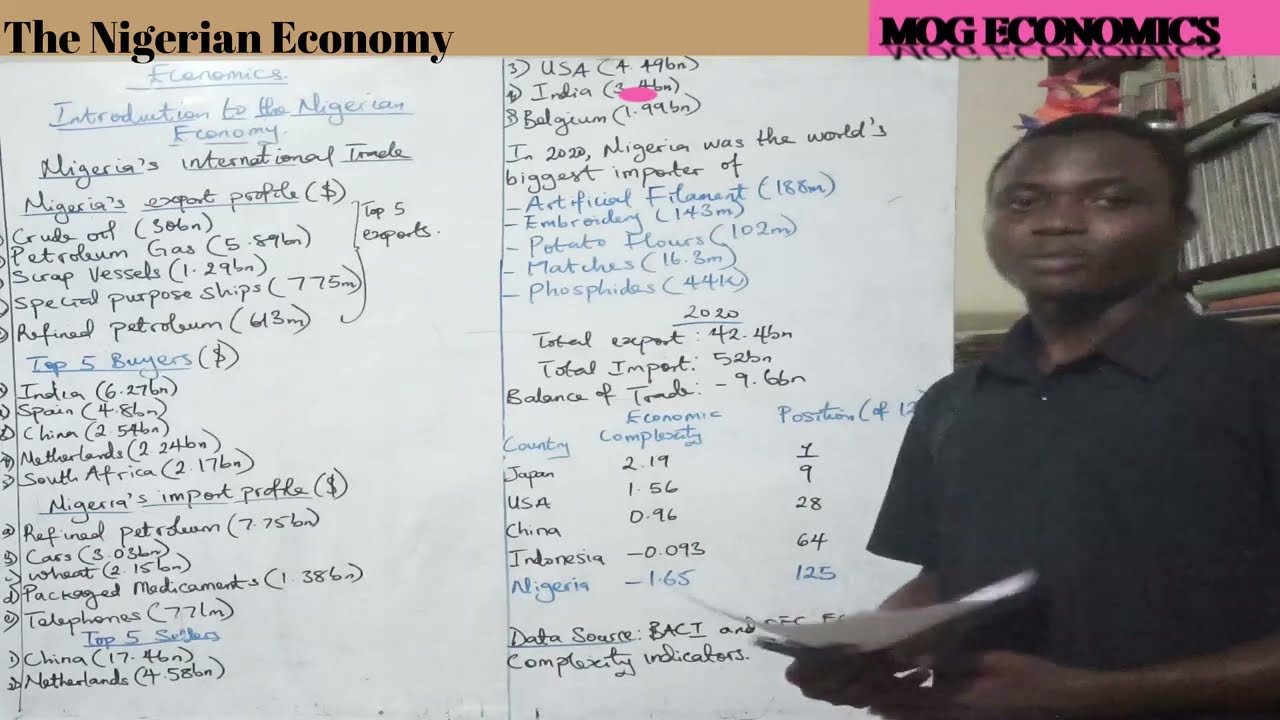 The Nigerian Economy
MOG ECONOMICS
Economics.
Introduction to the Nigerian
Economy.
Nigeria's international Trade
Nigeria's export profile ($)
Crude oil (30bn)
Petroleum Gas (5.89bn)
Scrap Vessels (1.29bn)
Special purpose ships (775m)
Refined petroleum (613m)
Top 5
exports.
Top 5 Buyers ($)
India (6.27bn)
Spain (4.8bn)
China (2.54bn)
Netherlands (2.24bn)
South Africa (2.17bn)
Nigeria's import profile ($)
a) Refined petroleum (7.75bn)
b) Cars (3.03bn)
c) Wheat (2.15bn)
d) Packaged Medicaments (1.38bn)
e) Telephones (771m)
Top 5 Sellers
1) China (17.4bn)
2) Netherlands (4.58bn)
3) USA (4.49bn)
4) India (
5) Belgium (1.99bn)
In 2020, Nigeria was the world's
biggest importer of
- Artificial Filament (188m)
- Embroidery (143m)
- Potato Flours (102m)
- Matches (16.3m)
- Phosphides (441k)
2020
Total export : 42.4bn
Total Import : 52bn
Balance of Trade : - 9.6bn
Country Economic Complexity Position (of 12
Japan 2.19 1
USA 1.56 9
China 0.96 28
Indonesia -0.093 64
Nigeria -1.65 125
Data Source: BACI and
Complexity indicators.